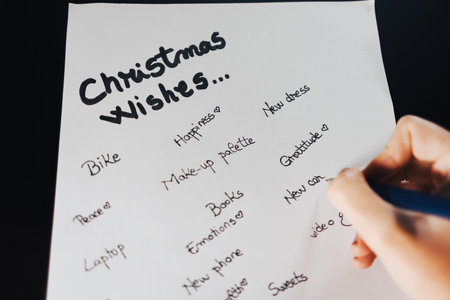 Christmas
Wishes...
Bike
Peace♡
Laptop
Happiness♡
Make-up palette
Books
Emotions♡
New phone
New dress
Gratitude♡
New car
video
Sweets